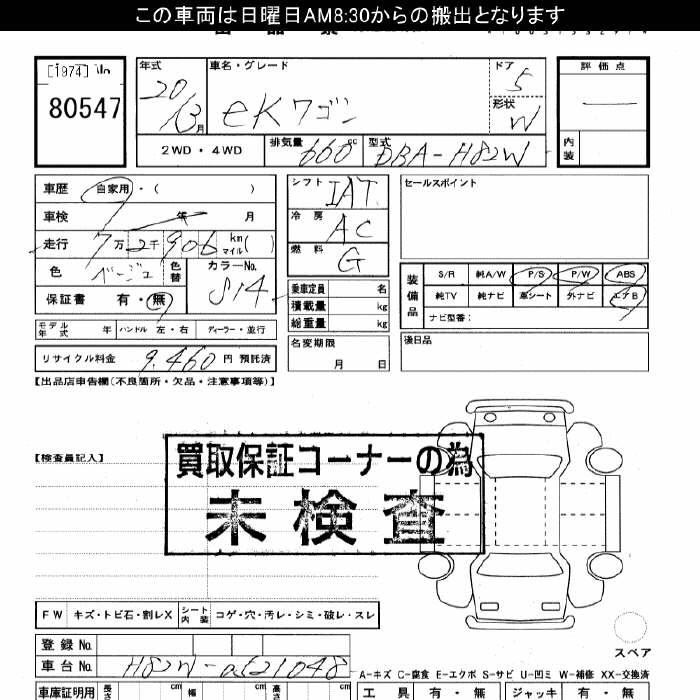 この車両は日曜日AM8:30からの搬出となります
[1974]
80547
年式 車名・グレード ドア 評価点
20/3月 eKワゴン 5
形状 W
2WD・4WD 排気量 660cc 型式 DBA-H82W 内装
車歴 自家用・( )
車検 年 月
走行 7万2千906 km マイル( )
色 ベージュ 色替 カラーNo. S14
保証書 有・無
モデル年式 年 ハンドル 左・右 ディーラー・並行
リサイクル料金 9,460 円 預託済
シフト IAT
冷房 AC
燃料 G
乗車定員 名
積載量 kg
総重量 kg
名変期限
月 日
セールスポイント
装備品 S/R 純A/W P/S P/W ABS
純TV 純ナビ 革シート 外ナビ エアB
ナビ型番:
後日品
【出品店申告欄(不良箇所・欠品・注意事項等)】
【検査員記入】
買取保証コーナーの為
未検査
FW キズ・トビ石・割レX シート内装 コゲ・穴・汚レ・シミ・破レ・スレ
スペア
登録No.
車台No. H82W-0621048
A-キズ C-腐食 E-エクボ S-サビ U-凹ミ W-補修 XX-交換済
車庫証明用 長さ cm 幅 cm 高さ cm
工具 有・無 ジャッキ 有・無